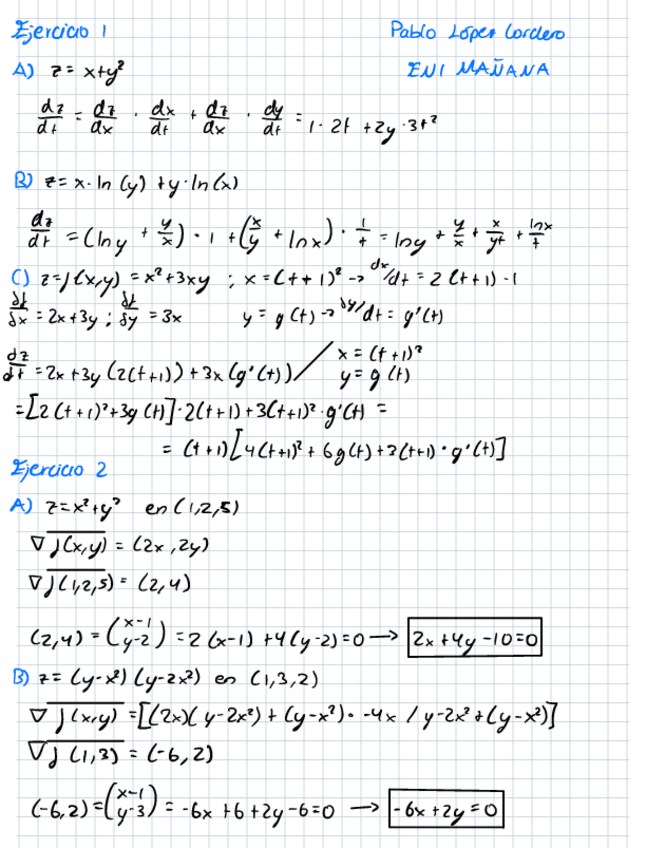 Ejercicio 1 Pablo López Cordero
A) z = x+y² ENI MAÑANA
dz/dt = dz/dx · dx/dt + dz/dx · dy/dt = 1 · 2t + 2y · 3t²
B) z = x · ln (y) + y · ln (x)
dz/dt = (ln y + y/x) · 1 + (x/y + ln x) · 1/t = ln y + y/x + x/yt + lnx/t
C) z = f(x,y) = x² + 3xy ; x = (t + 1)² -> dx/dt = 2 (t+1) · 1
δf/δx = 2x + 3y ; δf/δy = 3x y = g(t) -> δy/dt = g'(t)
dz/dt = 2x + 3y (2(t+1)) + 3x (g'(t)) / x = (t+1)²
y = g (t)
= [2 (t+1)² + 3g (t)] · 2(t+1) + 3(t+1)² · g'(t) =
= (t+1) [4(t+1)² + 6g(t) + 3(t+1) · g'(t)]
Ejercicio 2
A) z = x² + y² en (1,2,5)
∇ f(x,y) = (2x, 2y)
∇ f(1,2,5) = (2,4)
(2,4) = (x-1 y-2) = 2 (x-1) + 4(y-2) = 0 → 2x + 4y - 10 = 0
B) z = (y-x²) (y-2x²) en (1,3,2)
∇ f(x,y) = [(2x)(y-2x²) + (y-x²) · -4x / y-2x² + (y-x²)]
∇ f (1,3) = (-6, 2)
(-6,2) = (x-1 y-3) = -6x + 6 + 2y - 6 = 0 → -6x + 2y = 0